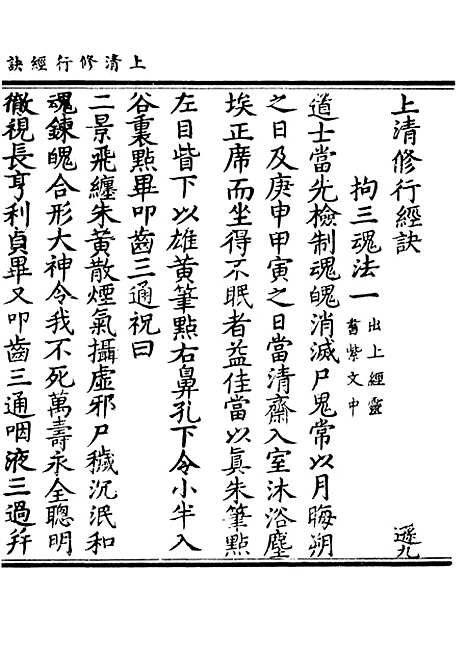 上清修行經訣
上清修行經訣
遜九
拘三魂法一
出上經靈
書紫文中
道士當先檢制魂魄消滅尸鬼常以月晦朔
之日及庚申甲寅之日當清齋入室沐浴塵
埃正席而坐得不眠者益佳當以眞朱筆點
左目眥下以雄黃筆點右鼻孔下令小半入
谷裏點畢叩齒三通祝曰
二景飛纏朱黃散煙氣攝虛邪尸穢沉泯和
魂鍊魄合形大神令我不死萬壽永全聰明
徹視長亨利貞畢又叩齒三通咽液三過幷